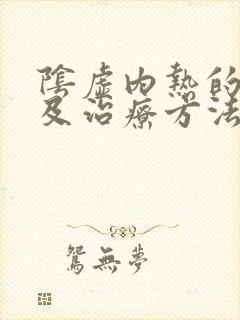 陰虛內熱的
及治療方法
鴛無夢